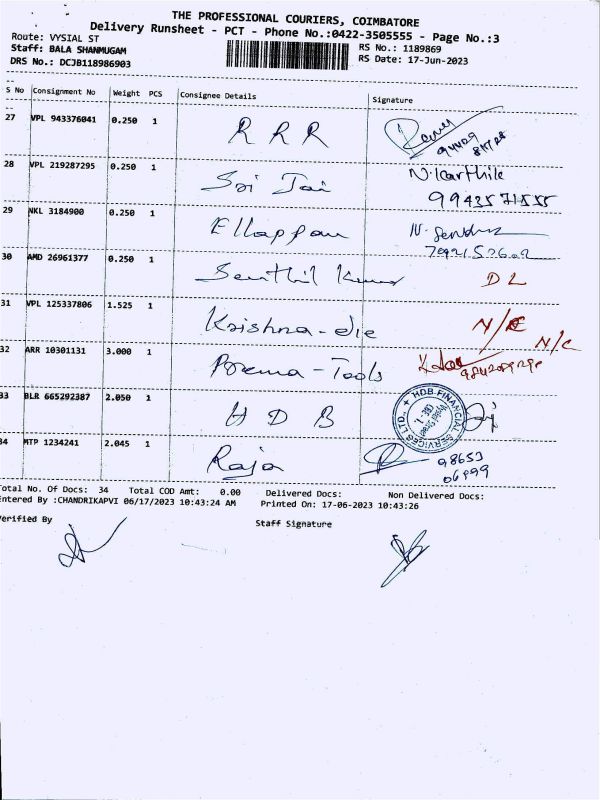 THE PROFESSIONAL COURIERS, COIMBATORE
Delivery Runsheet - PCT - Phone No.:0422-3505555 - Page No.:3
Route: VYSIAL ST
RS No.: 1189869
Staff: BALA SHANMUGAM
RS Date: 17-Jun-2023
DRS No.: DCJB118986903
S No Consignment No Weight PCS Consignee Details Signature
27 VPL 943376041 0.250 1 R R R
28 VPL 219287295 0.250 1 Sri Jai N.Karthik
9943571555
29 NKL 3184900 0.250 1 Ellappan
30 AMD 26961377 0.250 1 Senthil Kumar D L
31 VPL 125337806 1.525 1 Krishna-die N/C N/C
32 ARR 10301131 3.000 1 Prema-Tools
33 BLR 665292387 2.050 1 H D B HDB FINANCIAL SERVICES LTD.,
34 MTP 1234241 2.045 1 Raja 98653
06999
Total No. Of Docs: 34 Total COD Amt: 0.00 Delivered Docs: Non Delivered Docs:
Entered By :CHANDRIKAPVI 06/17/2023 10:43:24 AM Printed On: 17-06-2023 10:43:26
Verified By
Staff Signature